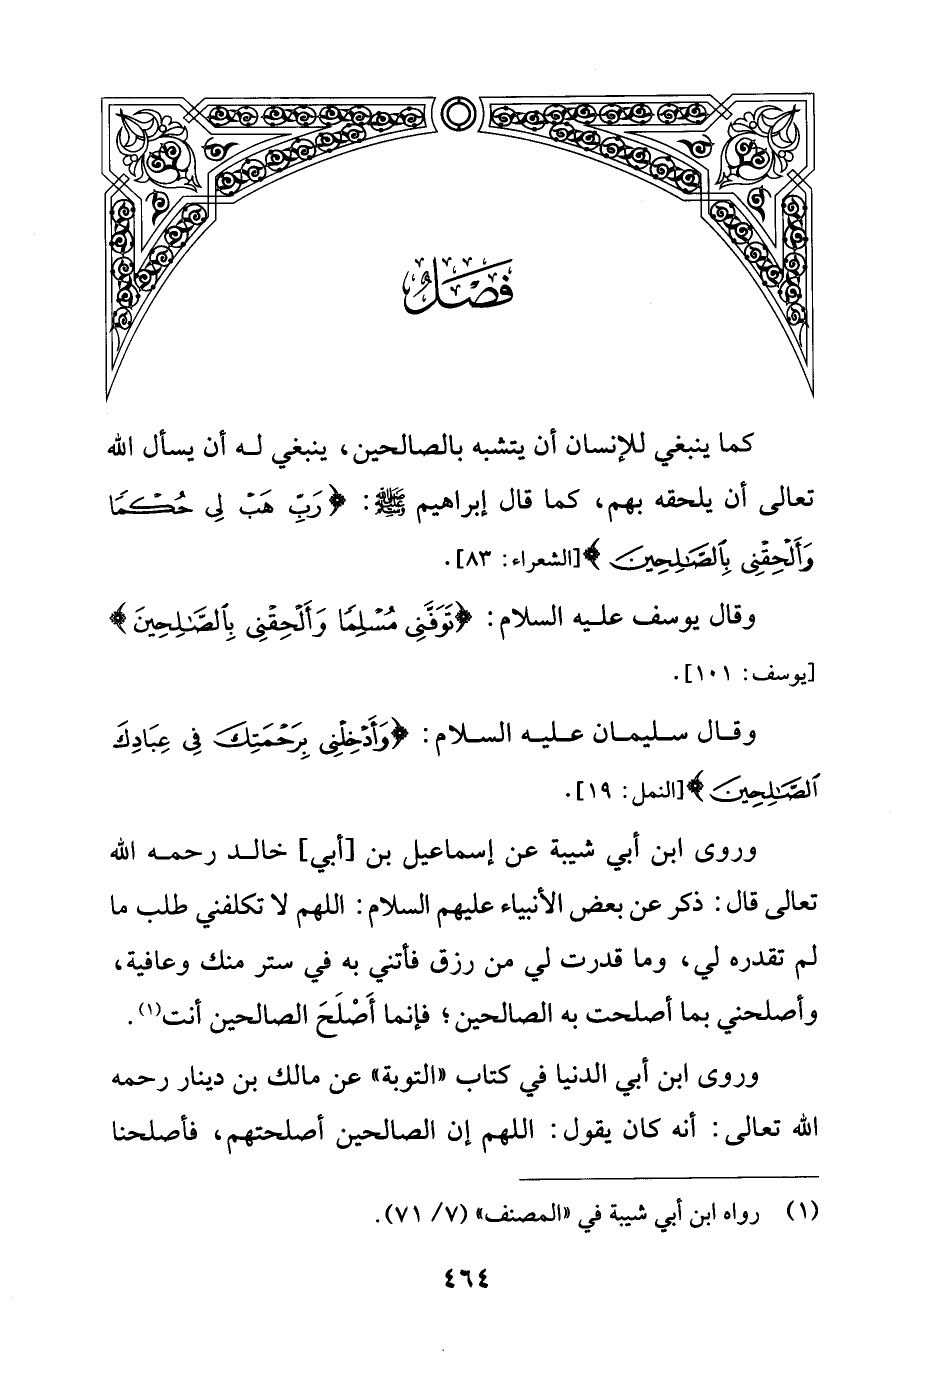 فَصْلٌ
كما ينبغي للإنسان أن يتشبه بالصالحين، ينبغي له أن يسأل الله
تعالى أن يلحقه بهم، كما قال إبراهيم ﷺ: ﴿رَبِّ هَبْ لِى حُكْمًا
وَأَلْحِقْنِى بِٱلصَّٰلِحِينَ﴾[الشعراء: ٨٣].
وقال يوسف عليه السلام: ﴿تَوَفَّنِى مُسْلِمًا وَأَلْحِقْنِى بِٱلصَّٰلِحِينَ﴾
[يوسف: ١٠١].
وقال سليمان عليه السلام: ﴿وَأَدْخِلْنِى بِرَحْمَتِكَ فِى عِبَادِكَ
ٱلصَّٰلِحِينَ﴾[النمل: ١٩].
وروى ابن أبي شيبة عن إسماعيل بن [أبي] خالد رحمه الله
تعالى قال: ذكر عن بعض الأنبياء عليهم السلام: اللهم لا تكلفني طلب ما
لم تقدره لي، وما قدرت لي من رزق فأتني به في ستر منك وعافية،
وأصلحني بما أصلحت به الصالحين؛ فإنما أَصْلَحَ الصالحين أنت(١).
وروى ابن أبي الدنيا في كتاب «التوبة» عن مالك بن دينار رحمه
الله تعالى: أنه كان يقول: اللهم إن الصالحين أصلحتهم، فأصلحنا
(١) رواه ابن أبي شيبة في «المصنف» (٧/ ٧١).
٤٦٤